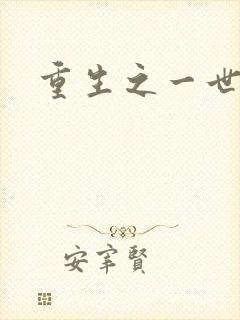 重生之一世
安宰賢